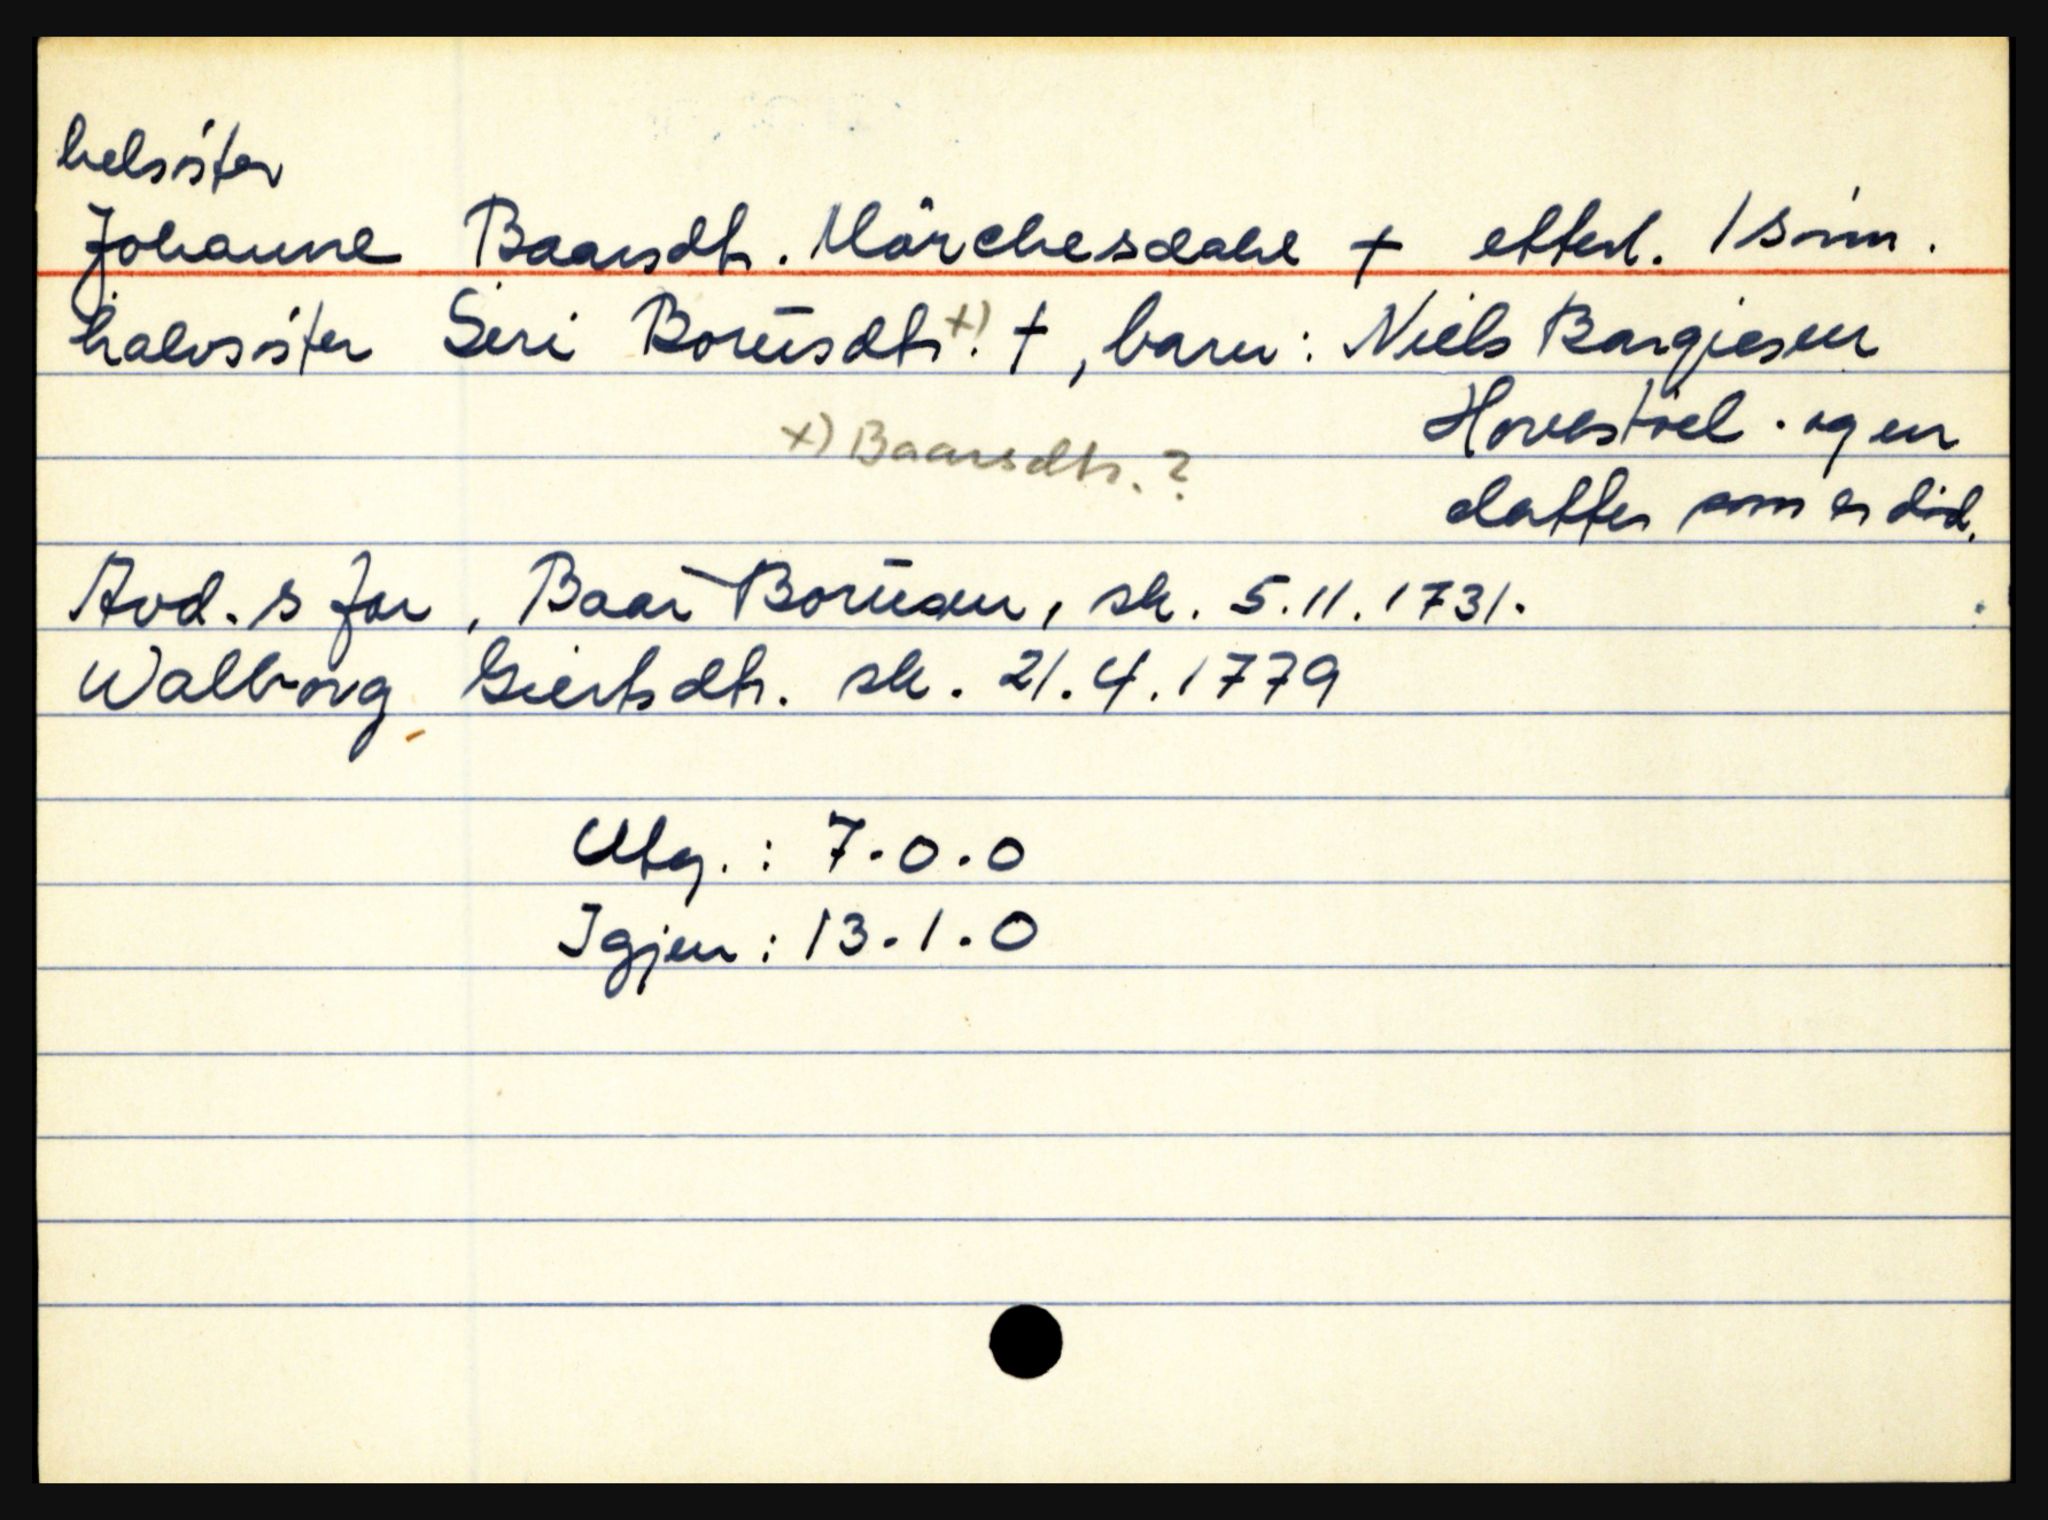 helsöster
Johanne Baarsdtr. Mörchesdahl + etterl. 1 sönn.
halvsöster Seri Borüsdtr. x) †, barn: Niels Bargiesen
Hovestöel. og en
x) Baarsdtr.?
datter som er död.
Avd. s far, Baar Borüsen, sk. 5.11.1731.
Walborg Giertsdtr. sk. 21.4.1779
Utg.: 7.0.0
Igjen: 13.1.0